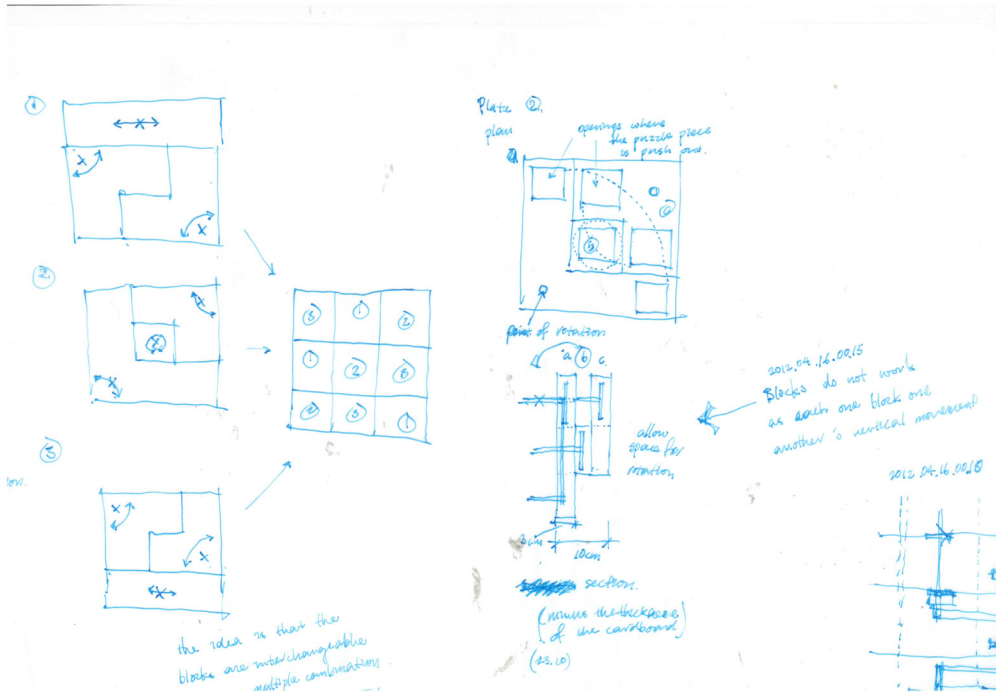 1
x
x
x
2
x
x
x
3
x
x
x
3 1 2
1 2 3
2 3 1
the idea is that the
blocks are interchangeable
multiple combination
Plate 2.
plan
openings where
the puzzle piece
is push out.
a
b
point of rotation
a b c.
allow
space for
rotation
10cm
section.
(minus the thickness
of the cardboard)
2012.04.16.00.15
Blocks do not work
as each one block one
another's vertical movement
2012.04.16.00.10